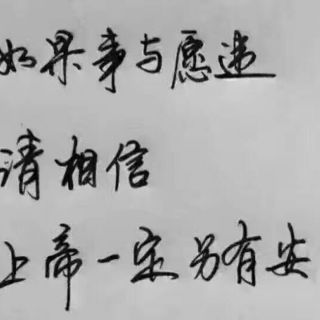 如果事与愿违
请相信
上帝一定另有安